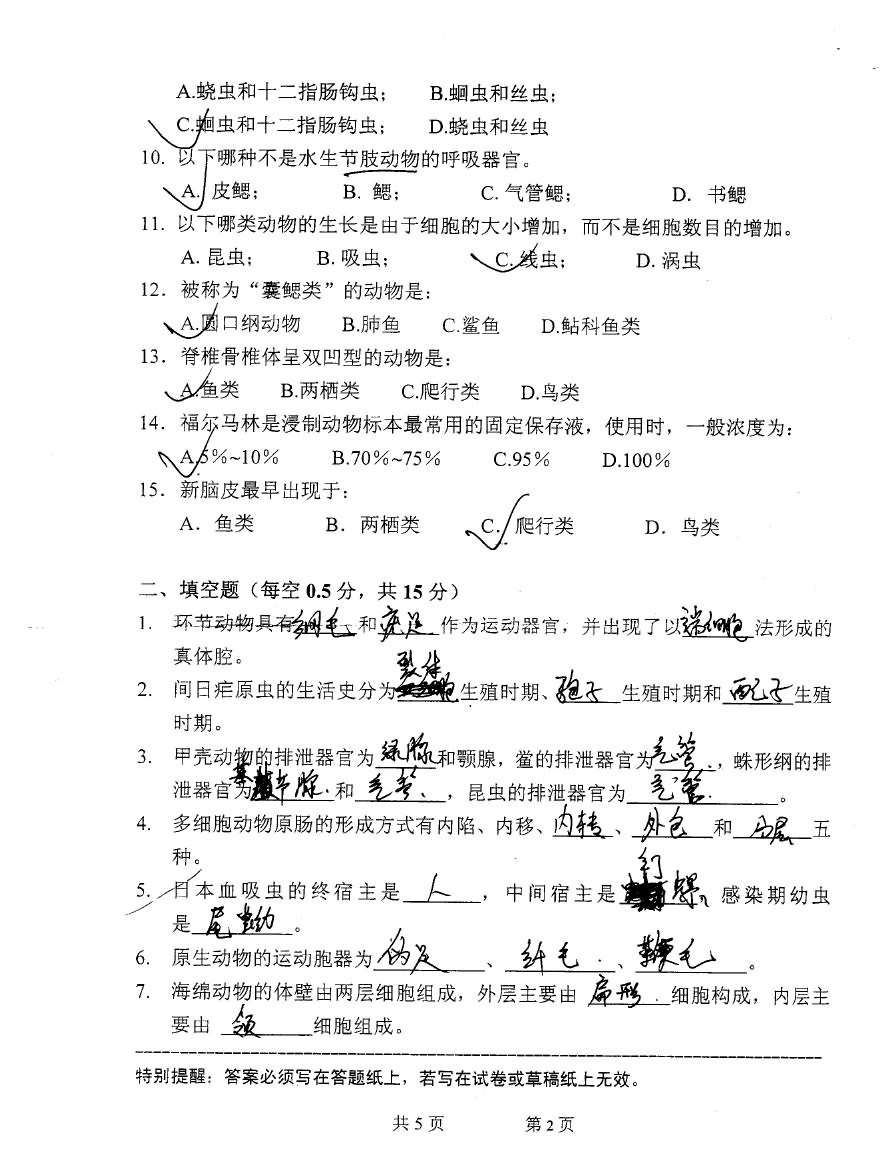 A.蛲虫和十二指肠钩虫； B.蛔虫和丝虫；
C.蛔虫和十二指肠钩虫； D.蛲虫和丝虫
10. 以下哪种不是水生节肢动物的呼吸器官。
A. 皮鳃； B. 鳃； C. 气管鳃； D. 书鳃
11. 以下哪类动物的生长是由于细胞的大小增加，而不是细胞数目的增加。
A. 昆虫； B. 吸虫； C. 线虫； D. 涡虫
12. 被称为“囊鳃类”的动物是：
A.圆口纲动物 B.肺鱼 C.鲨鱼 D.鲇科鱼类
13. 脊椎骨椎体呈双凹型的动物是：
A.鱼类 B.两栖类 C.爬行类 D.鸟类
14. 福尔马林是浸制动物标本最常用的固定保存液，使用时，一般浓度为：
A.5％~10％ B.70％~75％ C.95％ D.100％
15. 新脑皮最早出现于：
A. 鱼类 B. 两栖类 C. 爬行类 D. 鸟类
二、填空题（每空 0.5 分，共 15 分）
1. 环节动物具有 刚毛 和 疣足 作为运动器官，并出现了以 端细胞 法形成的
真体腔。
2. 间日疟原虫的生活史分为 裂体 生殖时期、孢子 生殖时期和 配子 生殖
时期。
3. 甲壳动物的排泄器官为 绿腺 和颚腺，鲎的排泄器官为 气管 ，蛛形纲的排
泄器官为 基节腺 和 气管 ，昆虫的排泄器官为 气管 。
4. 多细胞动物原肠的形成方式有内陷、内移、内转 、 外包 和 分层 五
种。
5. 日本血吸虫的终宿主是 人 ，中间宿主是 钉螺，感染期幼虫
是 尾蚴 。
6. 原生动物的运动胞器为 伪足 、 纤毛 、 鞭毛 。
7. 海绵动物的体壁由两层细胞组成，外层主要由 扁形 细胞构成，内层主
要由 领 细胞组成。
特别提醒：答案必须写在答题纸上，若写在试卷或草稿纸上无效。
共 5 页 第 2 页